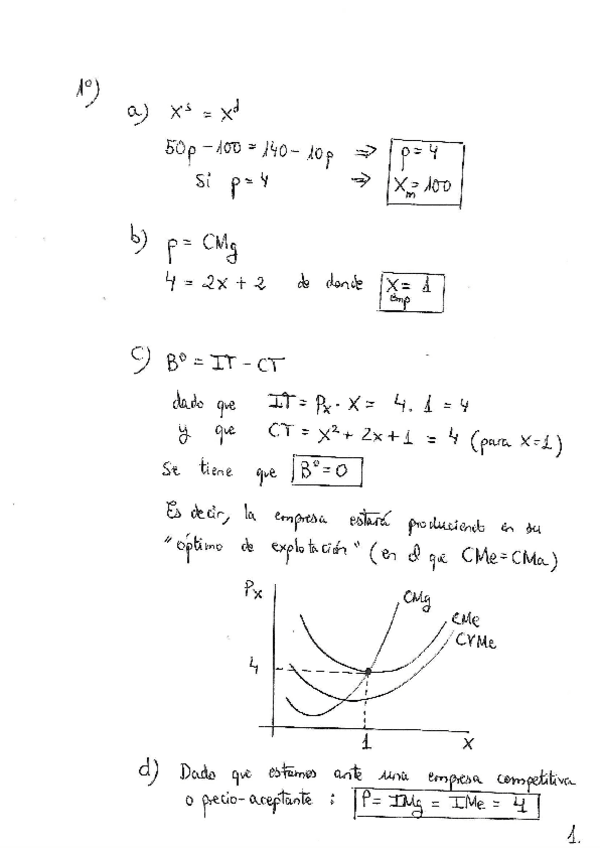 1º)
a) Xˢ = Xᵈ
50p - 100 = 140 - 10p ⇒ p = 4
Si p = 4 ⇒ Xₘ = 100
b) p = CMg
4 = 2x + 2 de donde X = 1
emp
c) Bº = IT - CT
dado que IT = Pₓ · X = 4 . 1 = 4
y que CT = X² + 2x + 1 = 4 (para X=1)
Se tiene que Bº = 0
Es decir, la empresa estará produciendo en su
"óptimo de explotación" (en el que CMe = CMa)
Px
CMg
CMe
CVMe
4
1
X
d) Dado que estamos ante una empresa competitiva
o precio-aceptante : P = IMg = IMe = 4
1.